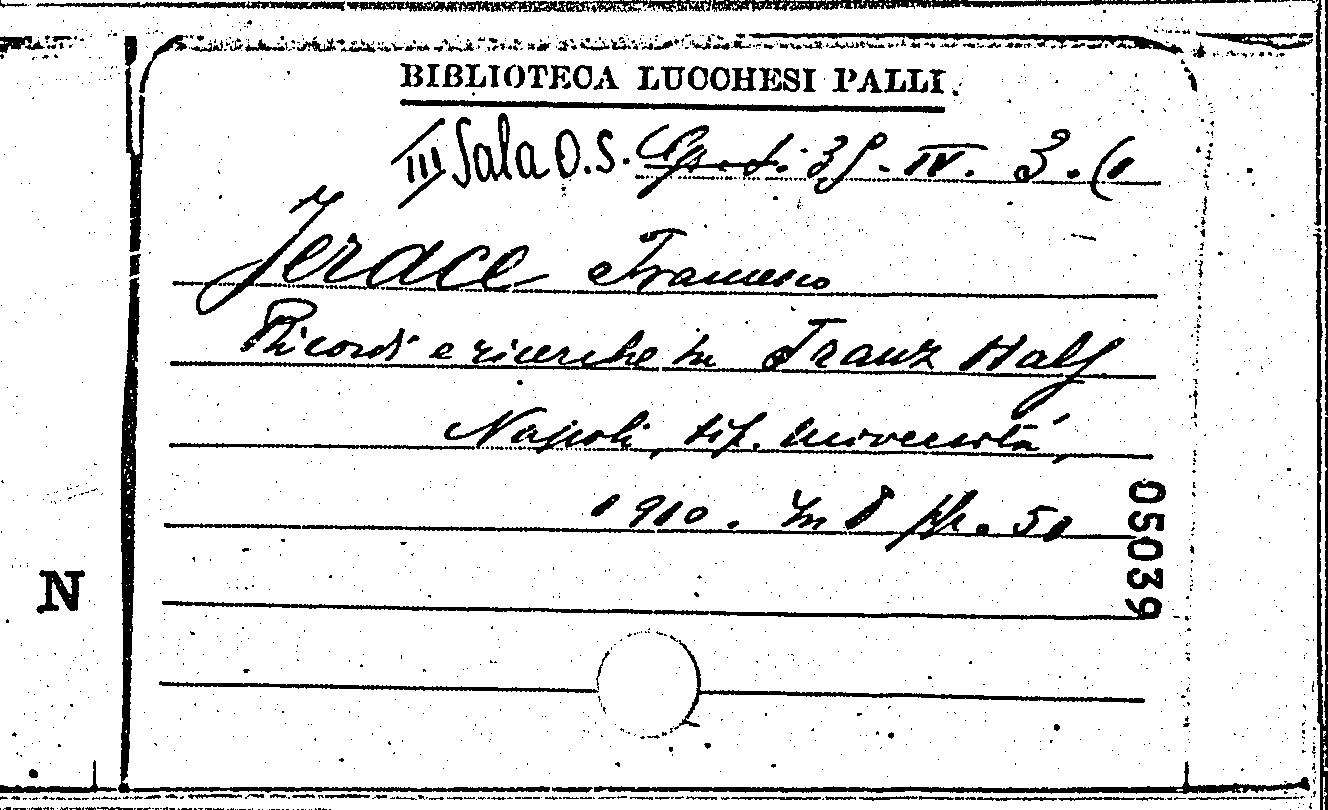 BIBLIOTECA LUCCHESI PALLI
III Sala O.S. IV. 3.
Jerace Francesco
Ricordi e ricerche su Franz Hals
Napoli, tip. Università,
1910. In 8 pp. 50
05039
N